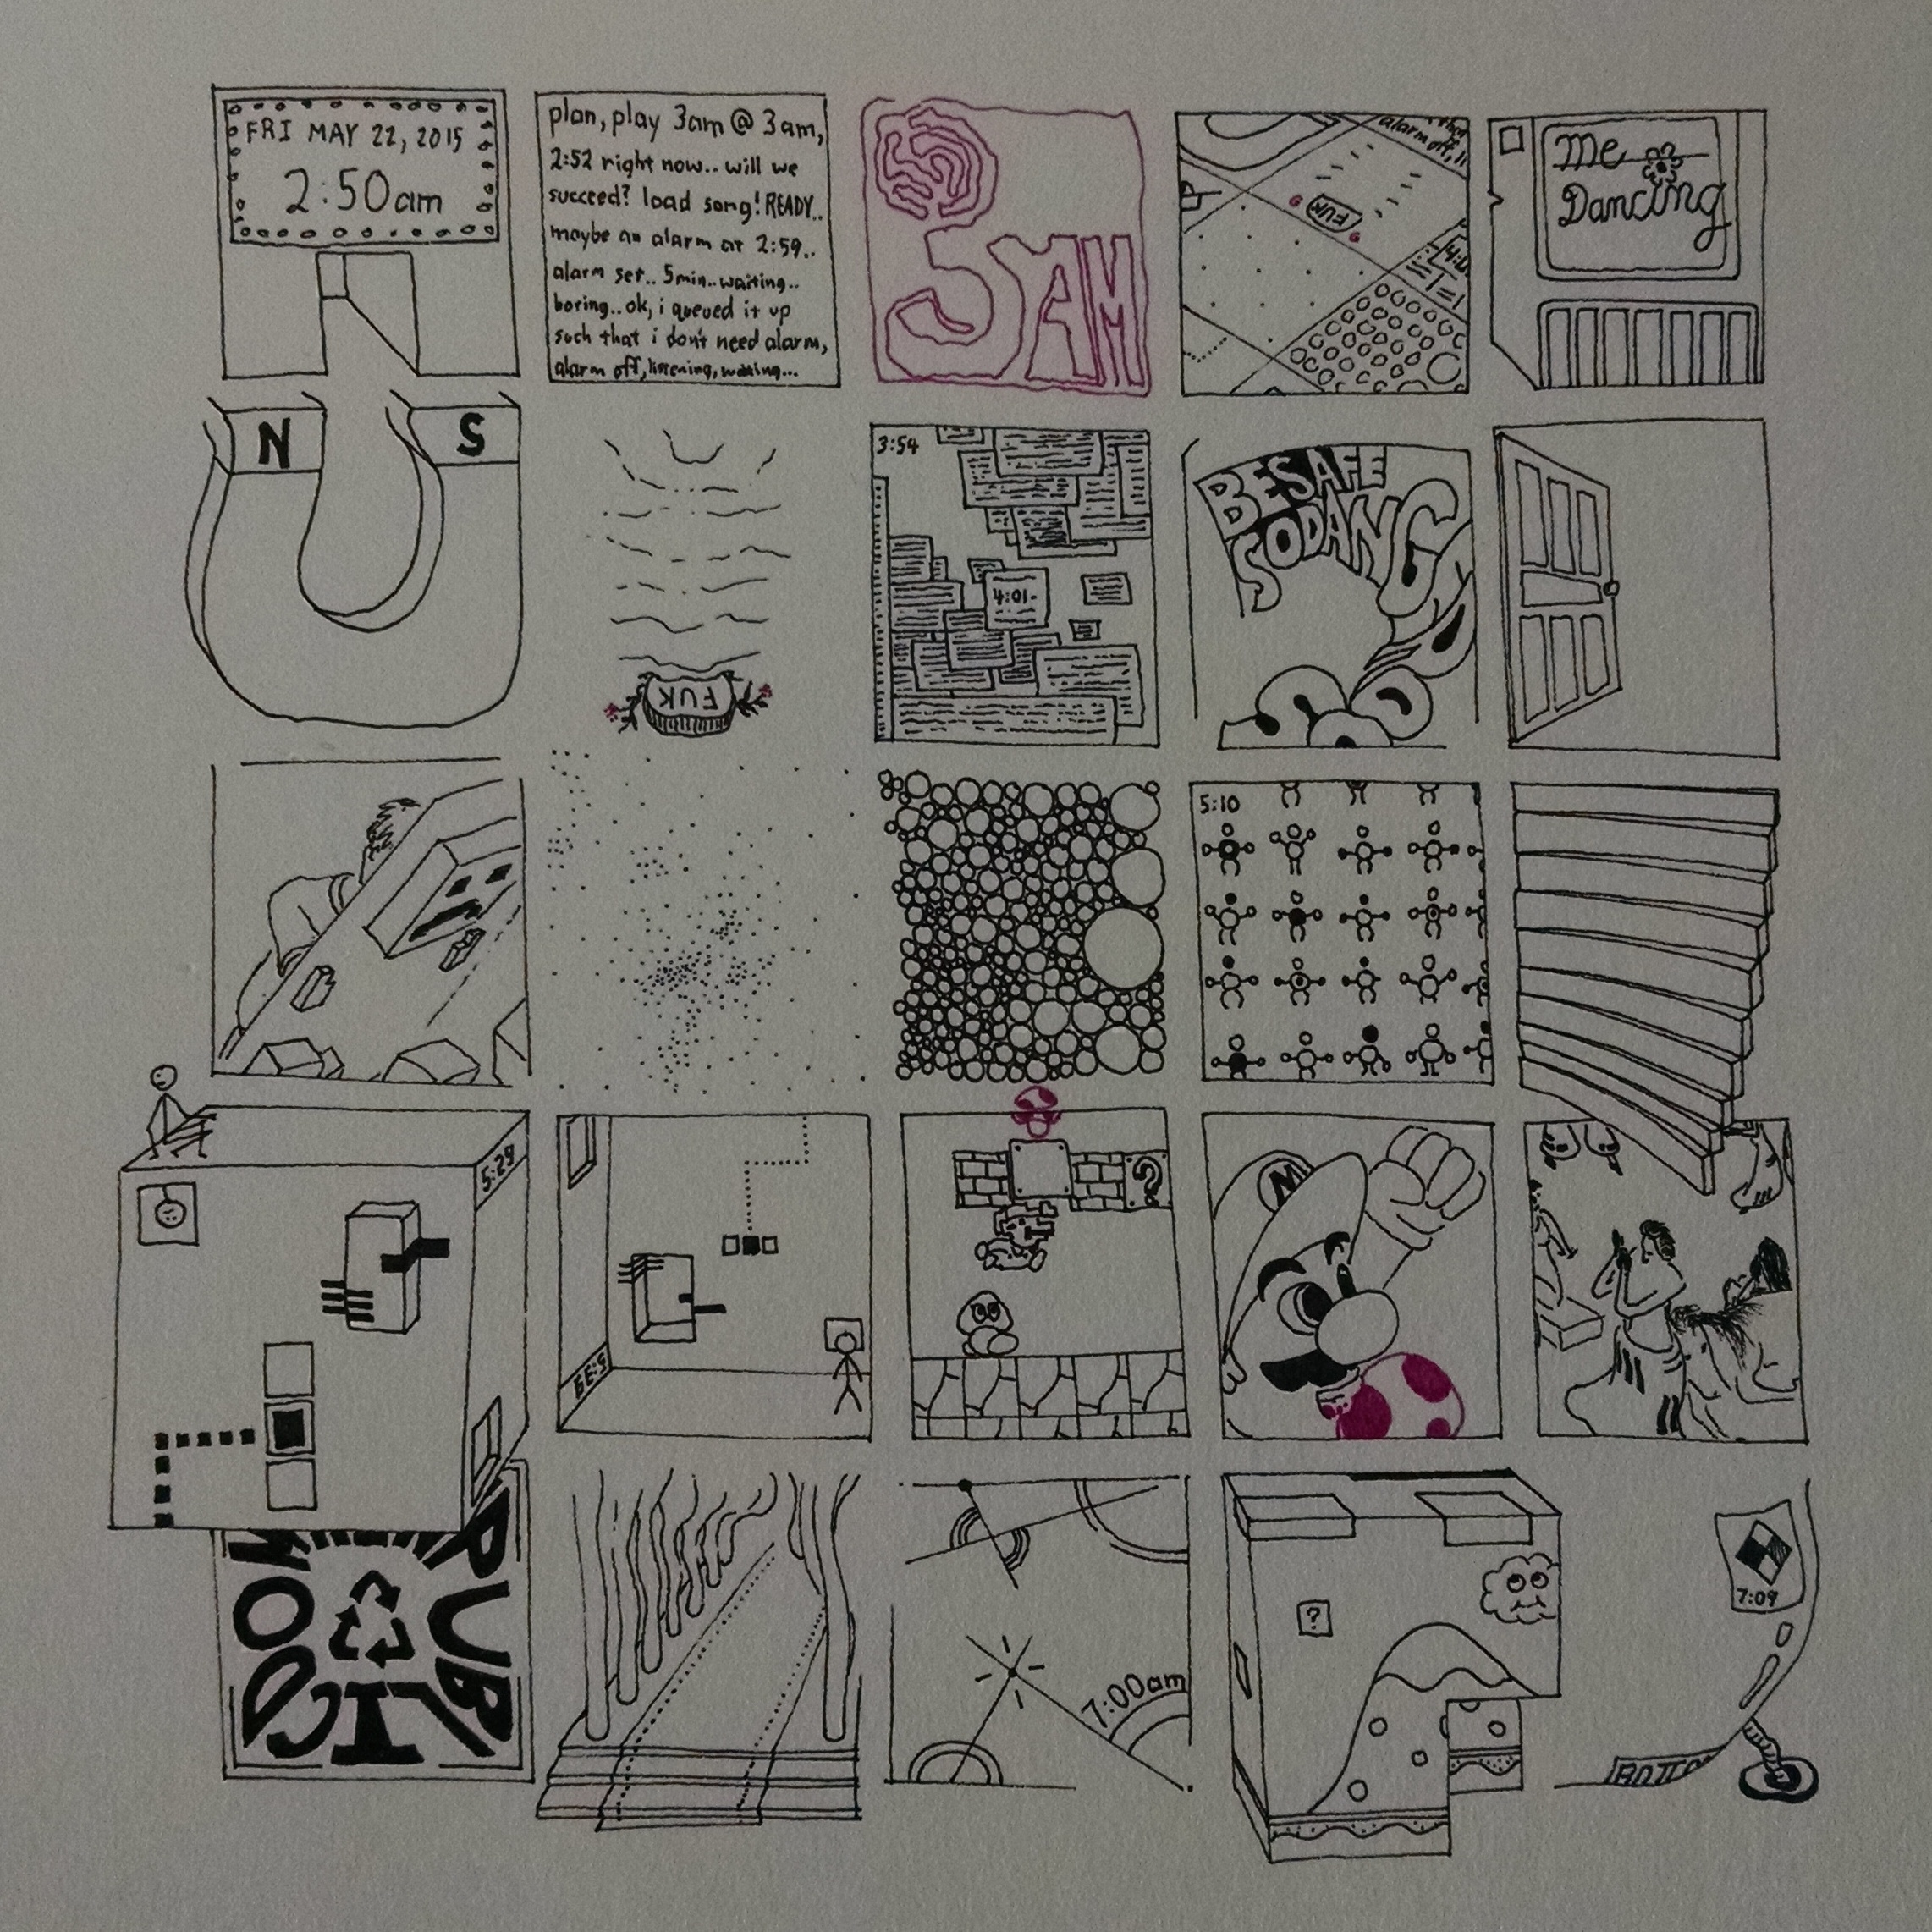 FRI MAY 22, 2015
2:50am
plan, play 3am @ 3am,
2:52 right now.. will we
succeed? load song! READY..
maybe an alarm at 2:59..
alarm set.. 5min.. waiting..
boring.. ok, i queued it up
such that i don't need alarm,
alarm off, listening, waiting...
3AM
alarm off, li
FUK
4:0
Me
Dancing
N S
FUK
3:54
4:01-
BE SAFE
SO DANG
5:10
5:29
5:39
?
M
PUBLIC
DOM
7:00am
?
7:09